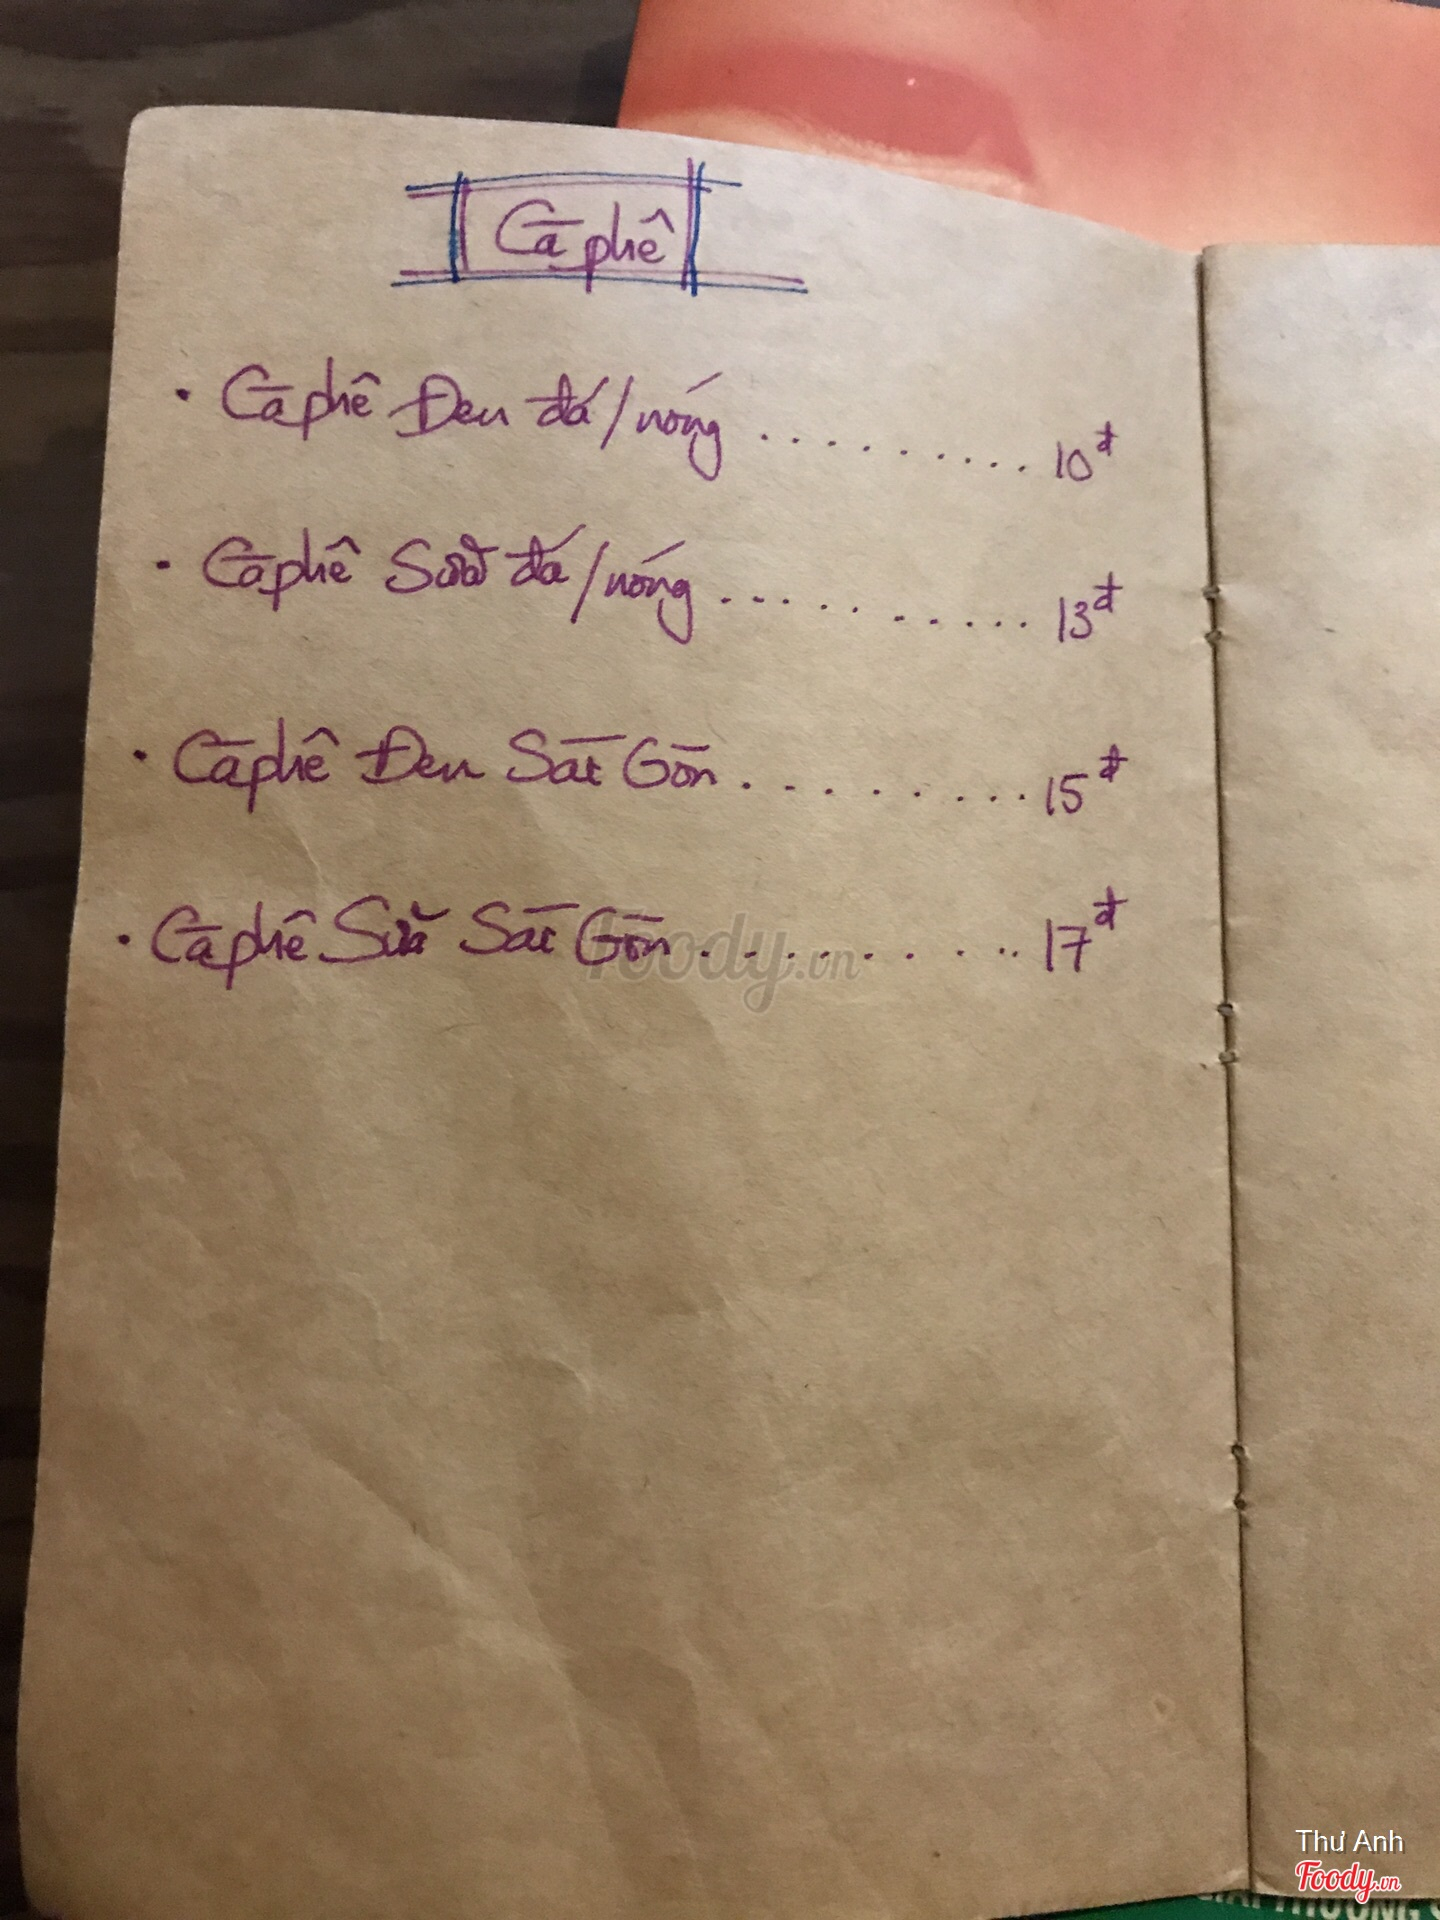 Cà phê
• Cà phê Đen đá/nóng ......... 10đ
• Cà phê Sữa đá/nóng .......... 13đ
• Cà phê Đen Sài Gòn ......... 15đ
• Cà phê Sữa Sài Gòn ......... 17đ
foody.vn
Thư Anh
Foody.vn